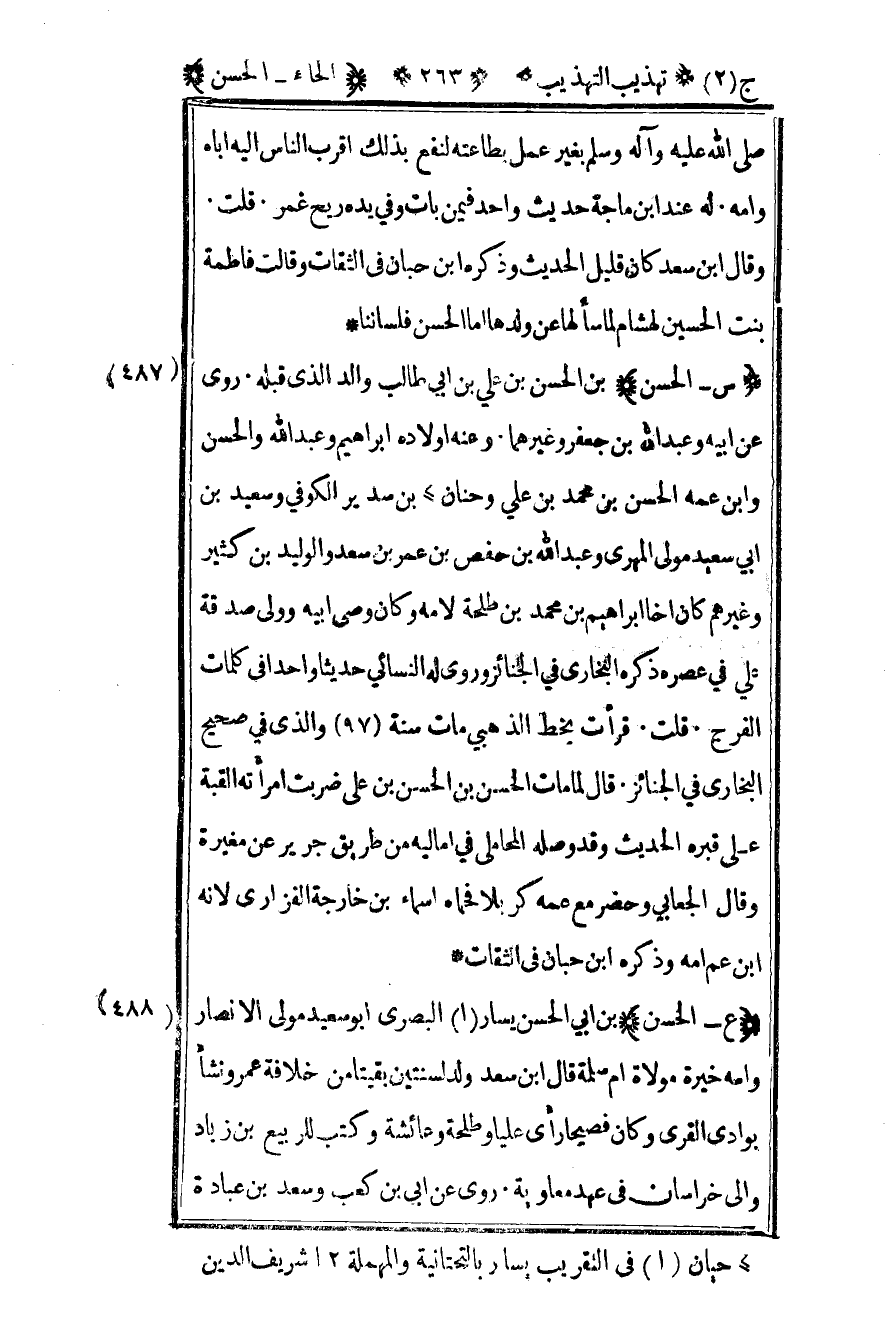 ج(٢) ﴿ تهذيب التهذيب ﴾ ﴿ ٢٦٣ ﴾ ﴿ الحاء ـ الحسن ﴾
صلى الله عليه وآله وسلم بغير عمل بطاعته لنفع بذلك اقرب الناس اليه اباه
وامه٠ له عند ابن ماجة حديث واحد فيمن بات وفي يده ريح غمر ٠ قلت ٠
وقال ابن سعد كان قليل الحديث وذكره ابن حبان فى الثقات وقالت فاطمة
بنت الحسين لهشام لما سألها عن ولدها اما الحسن فلساننا*
﴿ س ـ الحسن ﴾ بن الحسن بن علي بن ابي طالب والد الذى قبله ٠ روى (٤٨٧)
عن ابيه وعبدالله بن جعفر وغيرهما ٠ وعنه اولاده ابراهيم وعبدالله والحسن
وابن عمه الحسن بن محمد بن علي وحنان ﴾ بن سدير الكوفي وسعيد بن
ابي سعيد مولى المهرى وعبدالله بن حفص بن عمر بن سعد والوليد بن كثير
وغيرهم كان اخا ابراهيم بن محمد بن طلحة لامه وكان وصي ابيه وولى صدقة
علي في عصره ذكره البخارى في الجنائز وروى له النسائي حديثا واحدا فى كلمات
الفرج ٠ قلت ٠ قرأت بخط الذهبي مات سنة (٩٧) والذى في صحيح
البخارى في الجنائز ٠ قال لما مات الحسن بن الحسن بن على ضربت امرأته القبة
عـلى قبره الحديث وقد وصله المحاملى في اماليه من طريق جرير عن مغيرة
وقال الجعابي وحضر مع عمه كربلا فحماه اسماء بن خارجة الفزارى لانه
ابن عم امه وذكره ابن حبان فى الثقات*
﴿ ع ـ الحسن ﴾ بن ابي الحسن يسار (١) البصرى ابو سعيد مولى الانصار (٤٨٨)
وامه خيرة مولاة ام سلمة قال ابن سعد ولد لسنتين بقيتا من خلافة عمر ونشأ
بوادى القرى وكان فصيحا رأى عليا وطلحة وعائشة وكتب للربيع بن زياد
والى خراسان فى عهد معاوية ٠ روى عن ابي بن كعب وسعد بن عبادة
﴾ حبان (١) فى التقريب يسار بالتحتانية والمهملة ١٢ شريف الدين